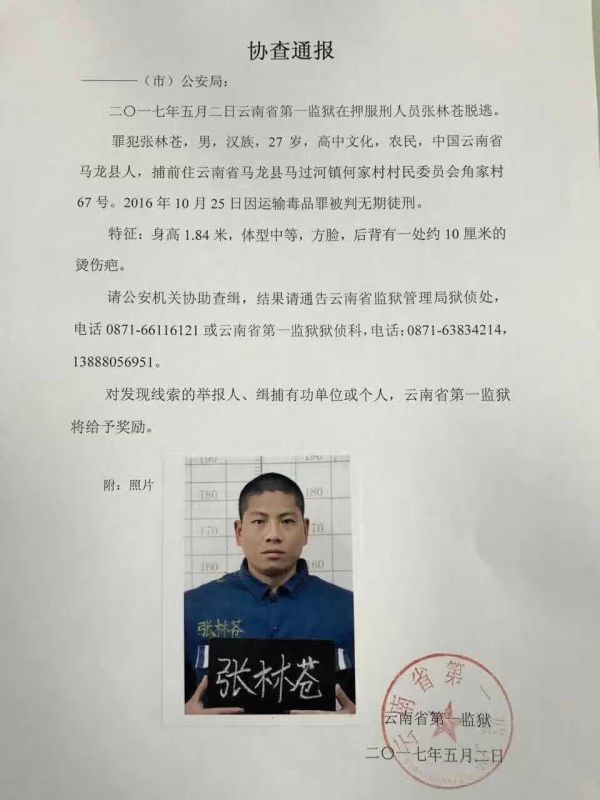 协查通报
————（市）公安局：
二〇一七年五月二日云南省第一监狱在押服刑人员张林苍脱逃。
罪犯张林苍，男，汉族，27 岁，高中文化，农民，中国云南省
马龙县人，捕前住云南省马龙县马过河镇何家村村民委员会角家村
67 号。2016 年 10 月 25 日因运输毒品罪被判无期徒刑。
特征：身高 1.84 米，体型中等，方脸，后背有一处约 10 厘米的
烫伤疤。
请公安机关协助查缉，结果请通告云南省监狱管理局狱侦处，
电话 0871-66116121 或云南省第一监狱狱侦科，电话：0871-63834214，
13888056951。
对发现线索的举报人、缉捕有功单位或个人，云南省第一监狱
将给予奖励。
附：照片
190 190
180 180
170 170
160 160
张林苍
张林苍
云南省第一监狱
云南省第一监狱
二〇一七年五月二日